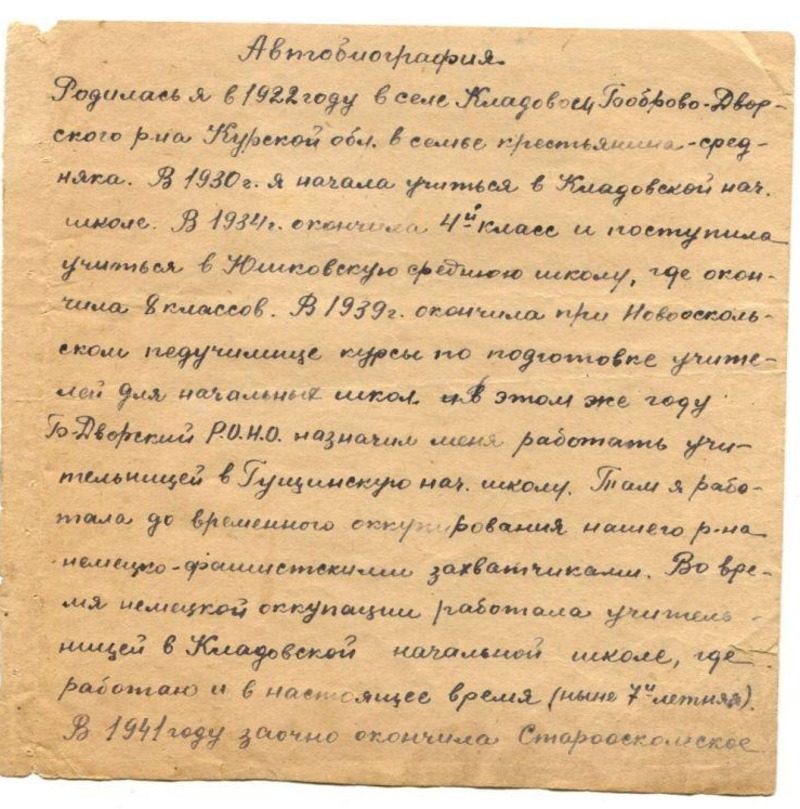 Автобиография.
Родилась я в 1922 году в селе Кладовое, Боброво-Двор-
ского р-на Курской обл. в семье крестьянина-серед-
няка. В 1930 г. я начала учиться в Кладовской нач.
школе. В 1934 г. окончила 4й класс и поступила
учиться в Юшковскую среднюю школу, где окон-
чила 8 классов. В 1939 г. окончила при Новоосколь-
ском педучилище курсы по подготовке учите-
лей для начальных школ. и В этом же году
Б-Дворский Р.О.Н.О. назначил меня работать учи-
тельницей в Гущинскую нач. школу. Там я рабо-
тала до временного оккупирования нашего р-на
немецко-фашистскими захватчиками. Во вре-
мя немецкой оккупации работала учитель-
ницей в Кладовской начальной школе, где
работаю и в настоящее время (ныне 7и летняя).
В 1941 году заочно окончила Старооскольское